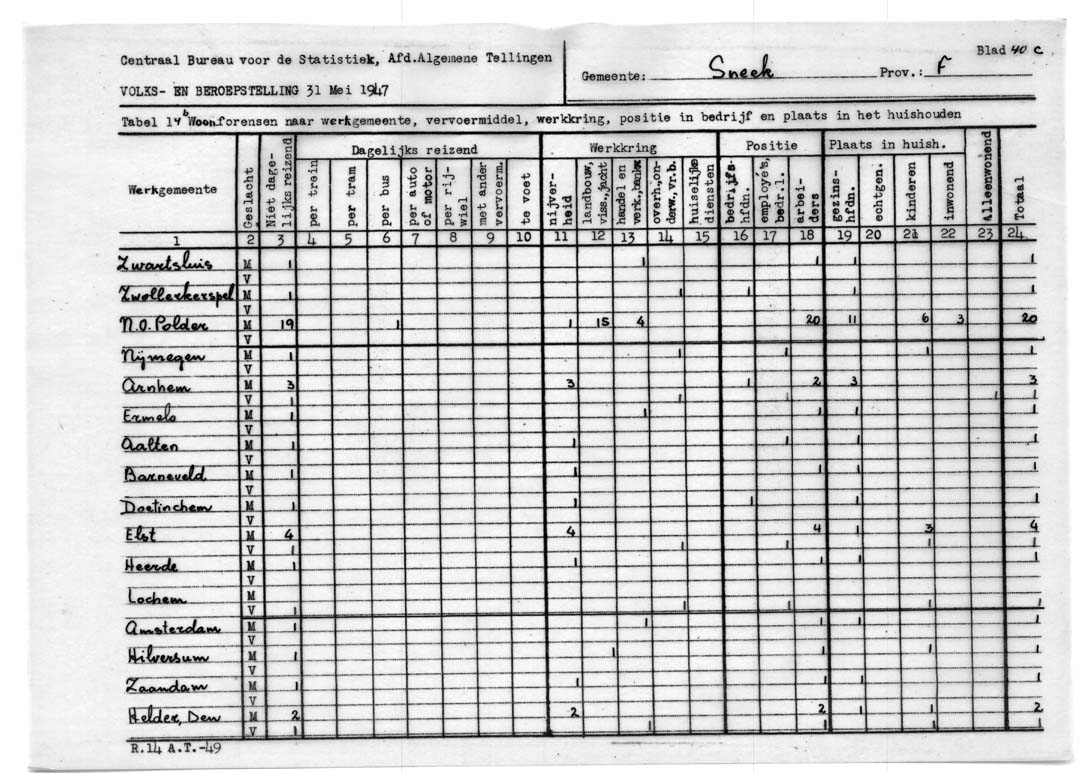 Blad 40 c
Centraal Bureau voor de Statistiek, Afd.Algemene Tellingen
Gemeente: Sneek Prov.: F
VOLKS- EN BEROEPSTELLING 31 Mei 1947
Tabel 14b Woonforensen naar werkgemeente, vervoermiddel, werkkring, positie in bedrijf en plaats in het huishouden
Werkgemeente Geslacht Niet dage-lijks reizend Dagelijks reizend Werkkring Positie Plaats in huish. alleenwonend Totaal
per trein per tram per bus per auto of motor per rij-wiel met ander vervoerm. te voet nijver-heid landbouw, viss.,jacht handel en verk.,bankw overh.on-derw.,vr.b. huiselijke diensten bedrijfs-hfdn. employé's, bedr.l. arbei-ders gezins-hfdn. echtgen. kinderen inwonend
1 2 3 4 5 6 7 8 9 10 11 12 13 14 15 16 17 18 19 20 21 22 23 24
Zwartsluis M 1 1 1 1 1
V
Zwollerkerspel M 1 1 1 1 1
V
N.O. Polder M 19 1 1 15 4 20 11 6 3 20
V
Nijmegen M 1 1 1 1 1
V
Arnhem M 3 3 1 2 3 3
V 1 1 1 1 1
Ermelo M 1 1 1 1 1
V
Aalten M 1 1 1 1 1
V
Barneveld M 1 1 1 1 1
V
Doetinchem M 1 1 1 1 1
V
Elst M 4 4 4 1 3 4
V 1 1 1 1 1
Heerde M 1 1 1 1 1
V
Lochem M
V 1 1 1 1 1
Amsterdam M 1 1 1 1 1
V
Hilversum M 1 1 1 1 1
V
Zaandam M 1 1 1 1 1
V
Helder, Den M 2 2 2 1 1 2
V 1 1 1 1 1
R.14 A.T.-49